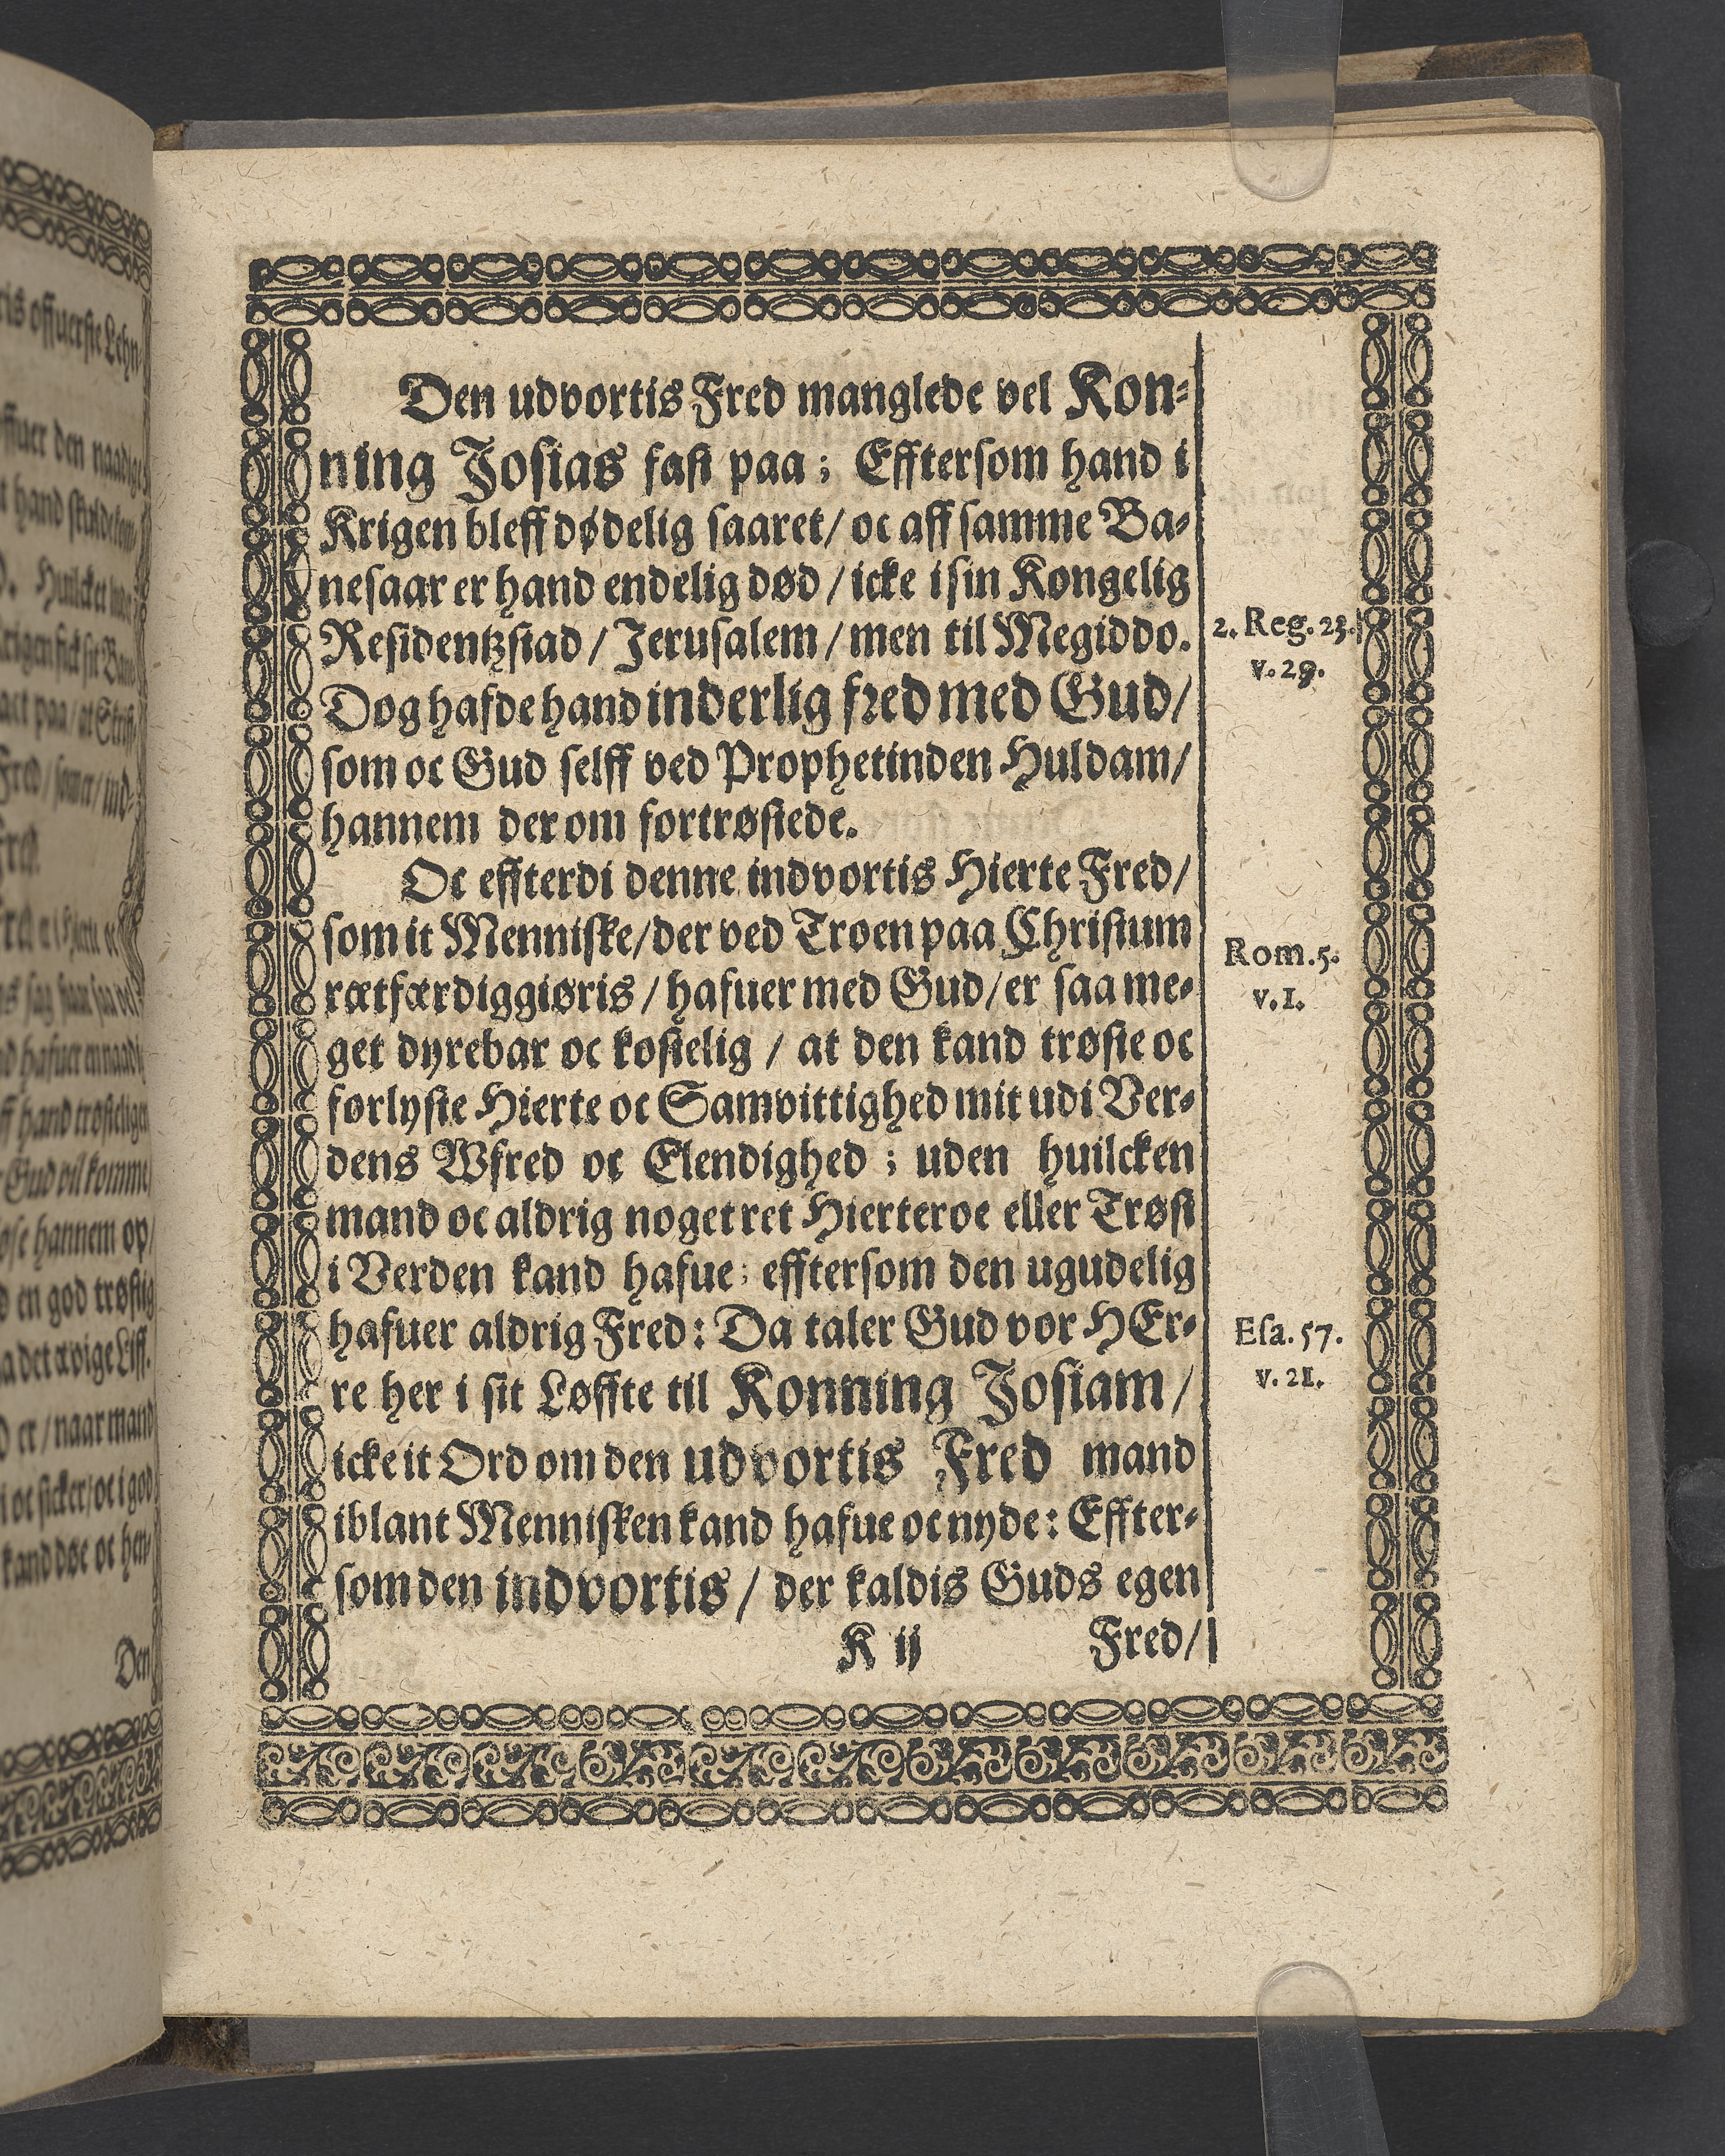 Den udvortis Fred manglede vel Kon-
ning Josias fast paa; Efftersom hand i
Krigen bleff dødelig saaret/ oc aff samme Ba-
nesaar er hand endelig død/ icke i sin Kongelig
Residentzstad/ Jerusalem/ men til Megiddo.
2. Reg. 23.
v. 29.
Dog hafde hand inderlig fred med Gud/
som oc Gud selff ved Prophetinden Huldam/
hannem der om fortrøstede.
Oc effterdi denne indvortis Hierte Fred/
som it Menniske/ der ved Troen paa Christum
Rom. 5.
v. 1.
rætfærdiggiøris/ hafuer med Gud/ er saa me-
get dyrebar oc kostelig/ at den kand trøste oc
forlyste Hierte oc Samvittighed mit udi Ver-
dens Wfred oc Elendighed; uden huilcken
mand oc aldrig noget ret Hierteroe eller Trøst
i Verden kand hafue; efftersom den ugudelig
hafuer aldrig Fred: Da taler Gud vor HEr-
Esa. 57.
v. 21.
re her i sit Løffte til Konning Josiam/
icke it Ord om den udvortis Fred mand
iblant Mennisken kand hafue oc nyde: Effter-
som den indvortis/ der kaldis Guds egen
K ij
Fred/